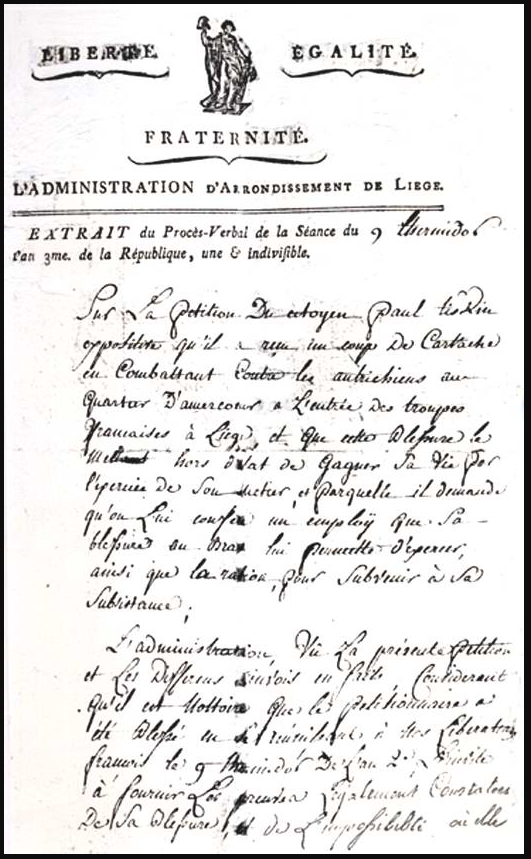 LIBERTÉ ÉGALITÉ.
FRATERNITÉ.
L'ADMINISTRATION D'ARRONDISSEMENT DE LIEGE.
EXTRAIT du Procès-Verbal de la Séance du 9 thermidor
l'an 3me. de la République, une & indivisible.
Sur La petition Du citoyen paul
expositive qu'il a reçu un coup De Cartache
en Combattant Contre les autrichiens au
Quartier D'amercoeur a L'entrée des troupes
françaises à Liege, et que cette Blessure le
mettant hors d'etat de Gagner Sa Vie Par
l'exercice de Son metier, et parquelle il demande
qu'on Lui confere un employ que Sa
blessure au bras lui permette D'exercer,
ainsi que la ration, pour Subvenir à Sa
Subsistance;
L'administration, Vu La présente petition
et Les Differens renvois en faits, Considerant
qu'il est Nottoire que le petitionnaire a
été Blessé en se réunissant à Nos Liberateurs
francois le 9 thermidor De l'an 2e, L'invite
à fournir Les preuves Legalement Constatées
De Sa Blessure, et de L'impossibilité où elle